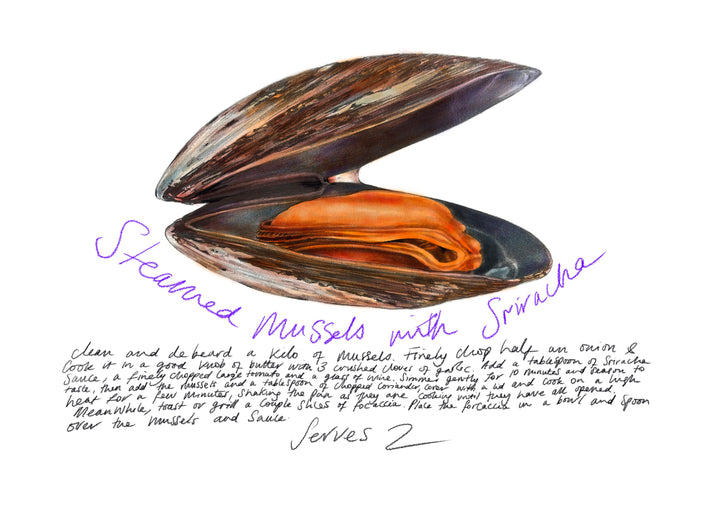 Steamed Mussels with Sriracha
clean and debeard a kilo of mussels. Finely chop half an onion &
cook it in a good knob of butter with 3 crushed cloves of garlic. Add a tablespoon of Sriracha
sauce, a finely chopped large tomato and a glass of wine. Simmer gently for 10 minutes and season to
taste, then add the mussels and a tablespoon of chopped coriander, cover with a lid and cook on a high
heat for a few minutes, shaking the pan as they are cooking until they have all opened.
Meanwhile, toast or grill a couple slices of focaccia. Place the focaccia in a bowl and spoon
over the mussels and sauce
Serves 2